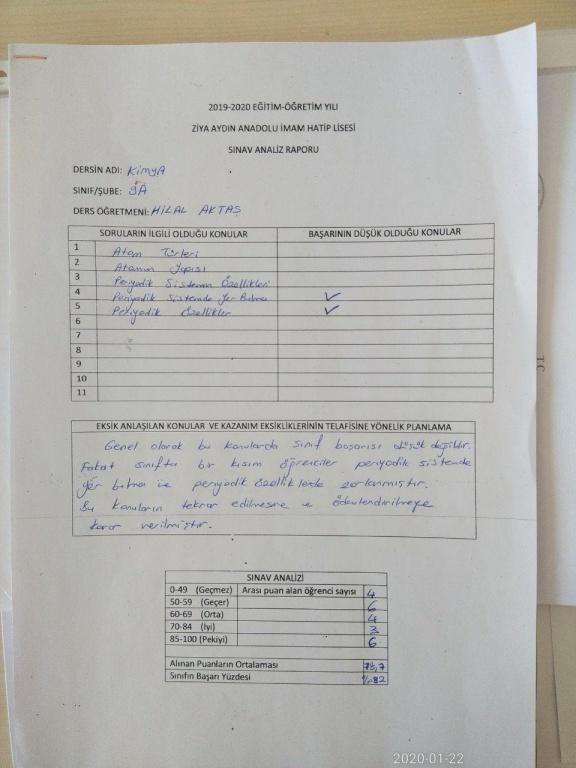 2019-2020 EĞİTİM-ÖĞRETİM YILI
ZİYA AYDIN ANADOLU İMAM HATİP LİSESİ
SINAV ANALİZ RAPORU
DERSİN ADI: KimyA
SINIF/ŞUBE: 9A
DERS ÖĞRETMENİ: HİLAL AKTAŞ
SORULARIN İLGİLİ OLDUĞU KONULAR BAŞARININ DÜŞÜK OLDUĞU KONULAR
1 Atom Türleri
2 Atomun Yapısı
3 Periyodik Sistemin Özellikleri
4 Periyodik Sistemde Yer Bulma ✓
5 Periyodik Özellikler ✓
6
7
8
9
10
11
EKSİK ANLAŞILAN KONULAR VE KAZANIM EKSİKLİKLERİNİN TELAFİSİNE YÖNELİK PLANLAMA
Genel olarak bu konularda sınıf başarısı düşük değildir.
Fakat sınıfta bir kısım öğrenciler periyodik sistemde
yer bulma ve periyodik özelliklerde zorlanmıştır.
Bu konuların tekrar edilmesine ve ödevlendirilmeye
karar verilmiştir.
SINAV ANALİZİ
0-49 (Geçmez) Arası puan alan öğrenci sayısı 4
50-59 (Geçer) 6
60-69 (Orta) 4
70-84 (İyi) 3
85-100 (Pekiyi) 6
Alınan Puanların Ortalaması
Sınıfın Başarı Yüzdesi %82
2020-01-22